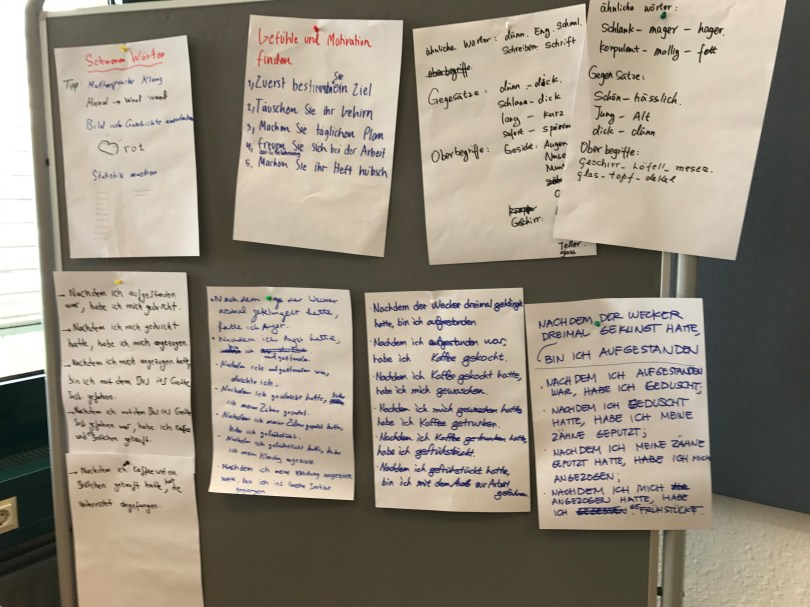 Schwere Wörter
Tipp: Muttersprache Klang
Hund → Wort
Bild und Geschichte
rot
Statistik machen
Gefühle und Motivation
finden
1, Zuerst bestimmen Sie ein Ziel
2, Täuschen Sie ihr Gehirn
3, Machen Sie täglichen Plan
4, Freuen Sie sich bei der Arbeit
5, Machen Sie ihr Heft hübsch
ähnliche Wörter: dünn. Eng. Schmal.
Schreiben Schrift
Oberbegriffe
Gegensätze: dünn - dick.
schlank - dick
lang - kurz
sofort -
Oberbegriffe:
Geschirr:
Teller.
ähnliche Wörter:
Schlank - mager - hager.
Korpulent - mollig - fett
Gegen Sätze:
Schön - hässlich.
Jung - Alt
dick - dünn
Ober begriffe:
Geschirr - Löfell - messer.
glas - topf - dekel
→ Nachdem ich aufgestanden
war, habe ich mich geduscht.
→ Nachdem ich mich geduscht
hatte, habe ich mich angezogen.
→ Nachdem ich mich angezogen hatte,
bin ich mit dem Bus ins Goethe
Inst gefahren.
→ Nachdem ich mit dem Bus ins Goethe
Inst gefahren war, habe ich Caffee
und Brötchen gekauft.
→ Nachdem ich Caffee und
Brötchen gekauft hatte, hat der
Unterricht angefangen.
• Nachdem der Wecker
geklingelt hatte,
hatte ich Angst.
• Nachdem ich Angst hatte,
bin ich
aufgestanden
• Nachdem ich aufgestanden war,
duschte ich.
• Nachdem ich geduscht hatte,
ich meine Zähne geputzt.
• Nachdem ich meine Zähne geputzt hatte,
habe ich gefrühstückt.
• Nachdem ich gefrühstückt hatte, habe
ich meine Kleidung angezogen.
• Nachdem ich meine Kleidung angezogen
hatte, bin ich ins Goethe Institut
gegangen
· Nachdem der Wecker dreimal geklingelt
hatte, bin ich aufgestanden
· Nachdem ich aufgestanden war,
habe ich Kaffee gekocht.
· Nachdem ich Kaffee gekocht hatte,
habe ich mich gewaschen.
· Nachdem ich mich gewaschen hatte
habe ich Kaffee getrunken.
· Nachdem ich Kaffee getrunken hatte,
habe ich gefrühstückt.
· Nachdem ich gefrühstückt hatte,
bin ich mit dem Auto zur Arbeit
gefahren
NACHDEM DER WECKER
DREIMAL GEKLINGT HATTE,
BIN ICH AUFGESTANDEN
· NACHDEM ICH AUFGESTANDEN
WAR, HABE ICH GEDUSCHT;
· NACHDEM ICH GEDUSCHT
HATTE, HABE ICH MEINE
ZÄHNE GEPUTZT;
· NACHDEM ICH MEINE ZÄHNE
GEPUTZT HATTE, HABE ICH MICH
ANGEZOGEN;
· NACHDEM ICH MICH
ANGEZOGEN HATTE, HABE
ICH GEFRÜHSTÜCKT.